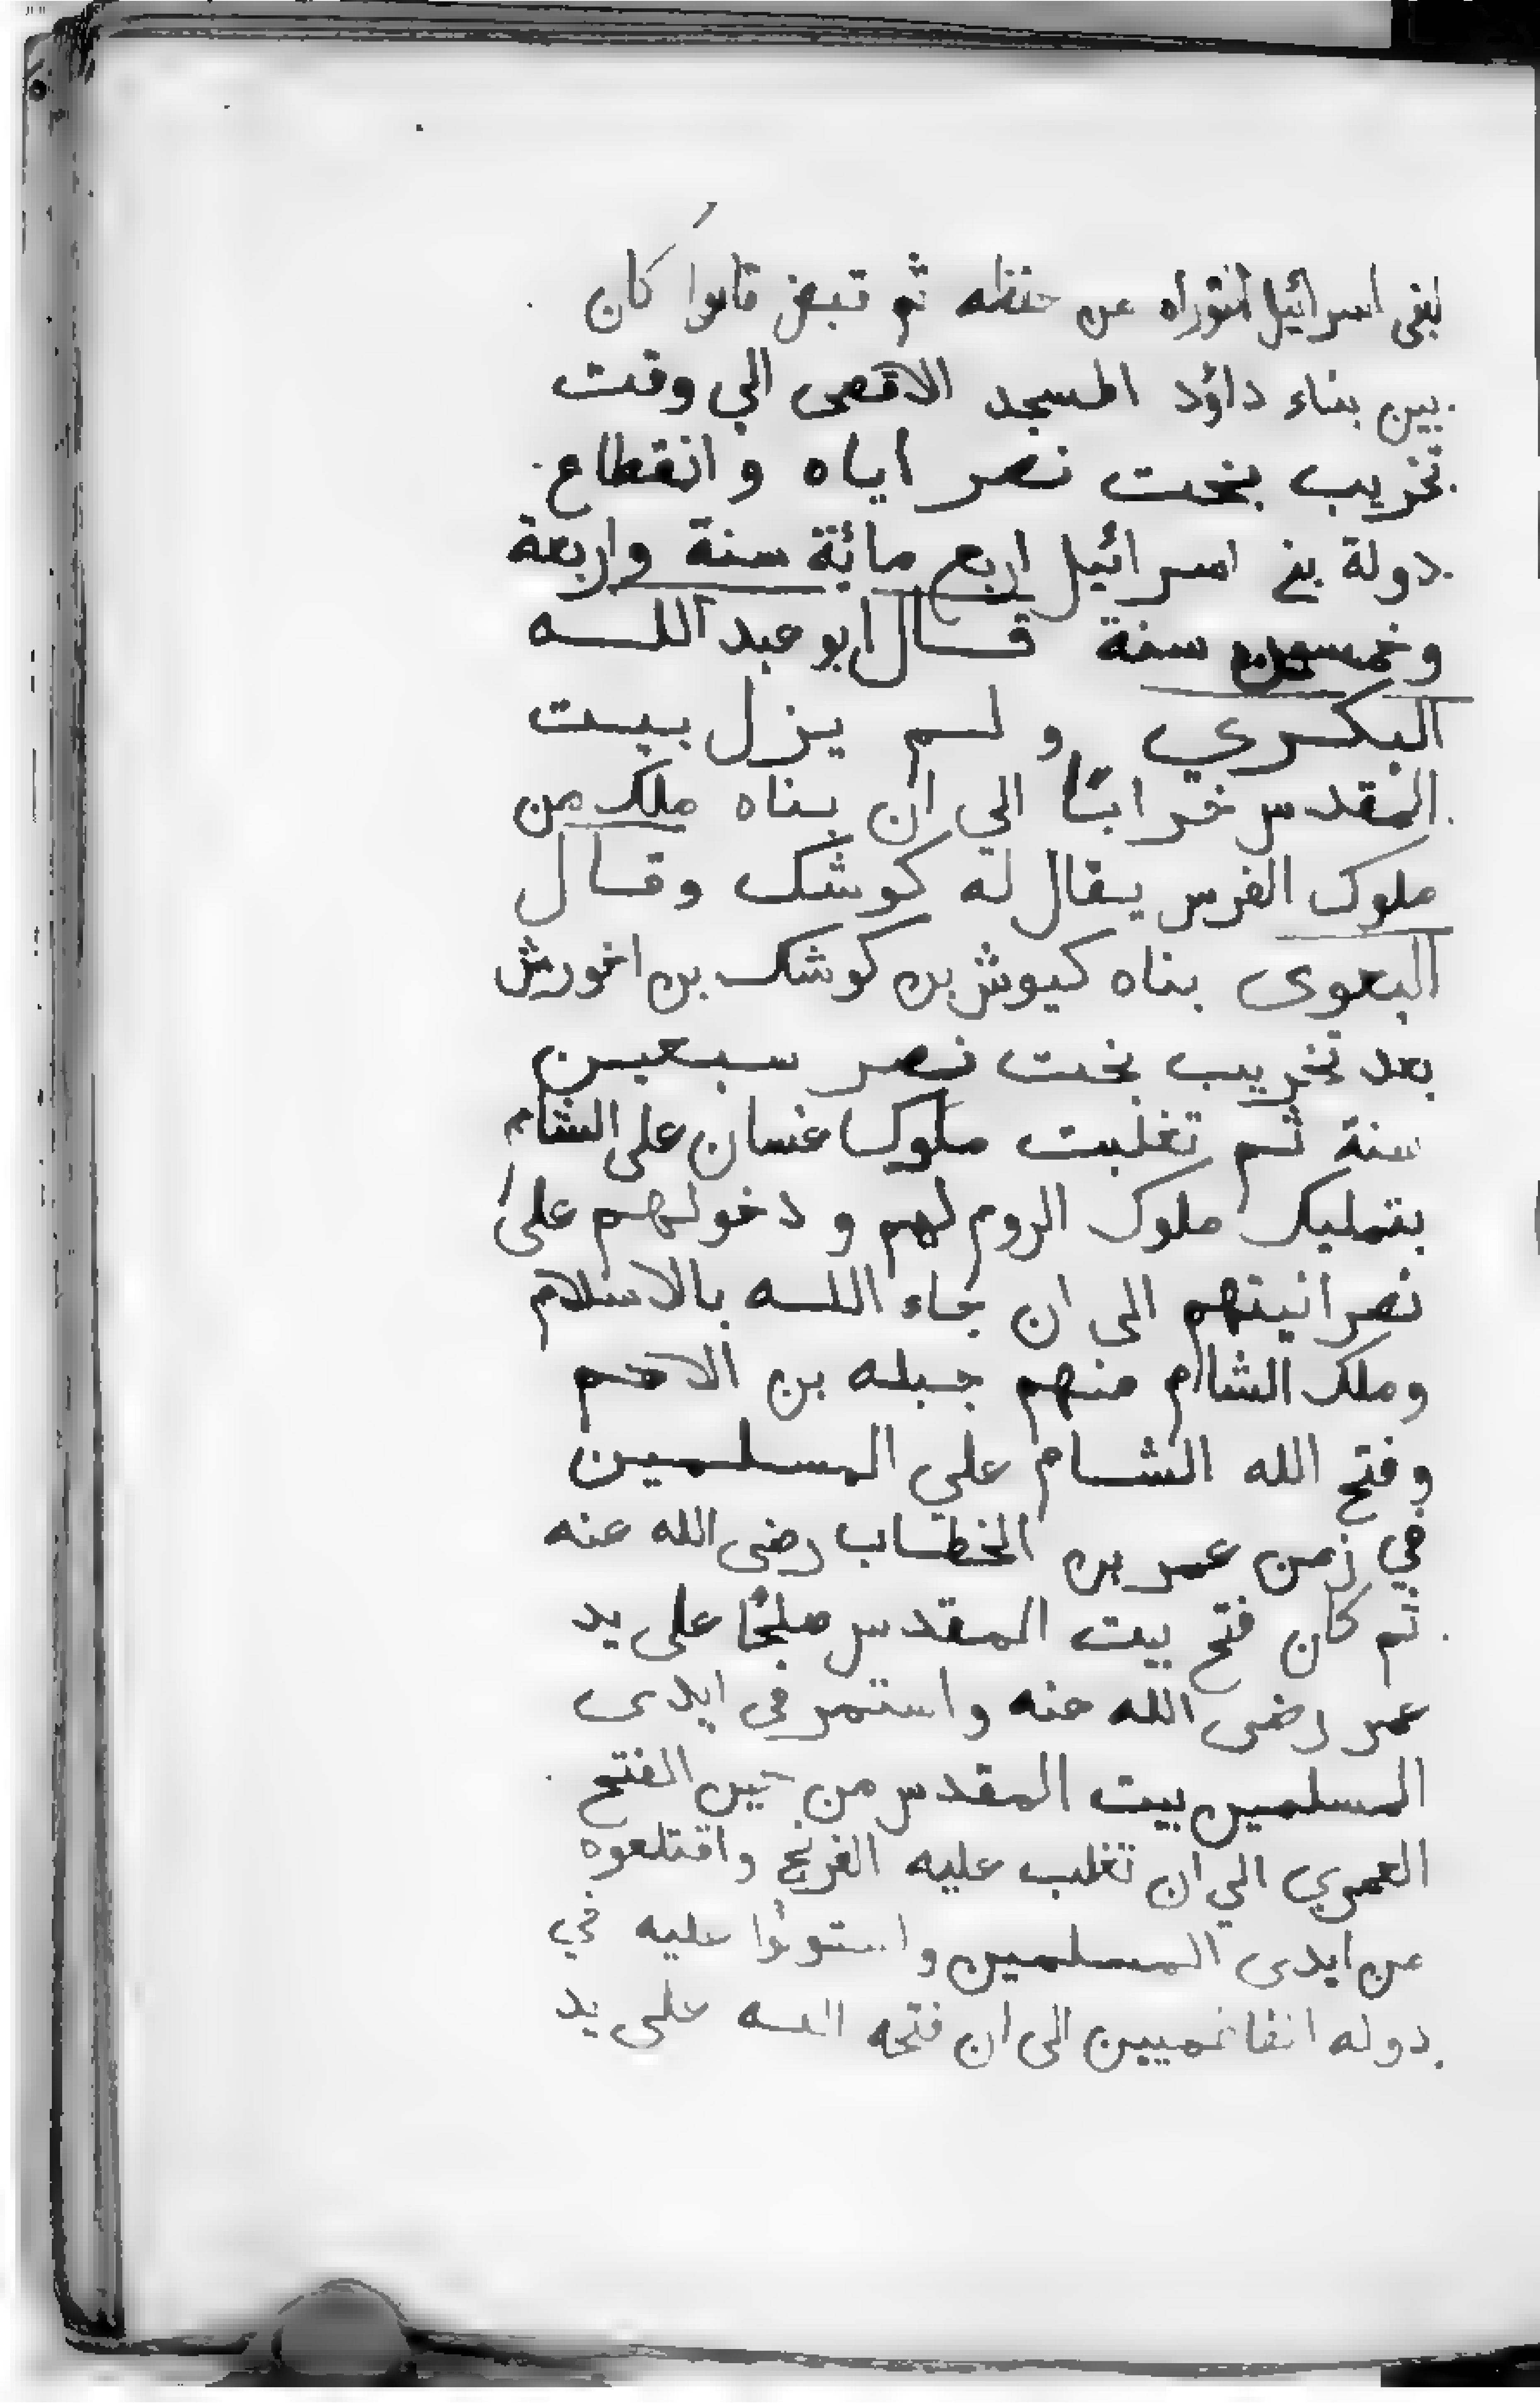 لبني اسرائيل التوراه عن حفظه ثم قبض قالوا كان
بين بناء داؤد المسجد الاقصى الي وقت
تخريب بخت نصر اياه وانقطاع
دولة بني اسرائيل اربع مائة سنة واربعة
وخمسين سنة قال ابو عبد الله
البكري ولم يزل بيت
المقدس خرابًا الي ان بناه ملك من
ملوك الفرس يقال له كوشك وقال
البغوى بناه كيوش بن كوشك بن اخورش
بعد تخريب بخت نصر سبعين
سنة ثم تغلبت ملوك غسان على الشام
بتمليك ملوك الروم لهم ودخولهم على
نصرانيتهم الى ان جاء الله بالاسلام
وملك الشام منهم جبله بن الايهم
وفتح الله الشام علي المسلمين
في زمن عمر بن الخطاب رضى الله عنه
ثم كان فتح بيت المقدس صلحًا على يد
عمر رضى الله عنه واستمر في ايدى
المسلمين بيت المقدس من حين الفتح
العمري الي ان تغلب عليه الفرنج واقتلعوه
من ايدى المسلمين واستولوا عليه في
دوله الفاطميين الى ان فتحه الله على يد